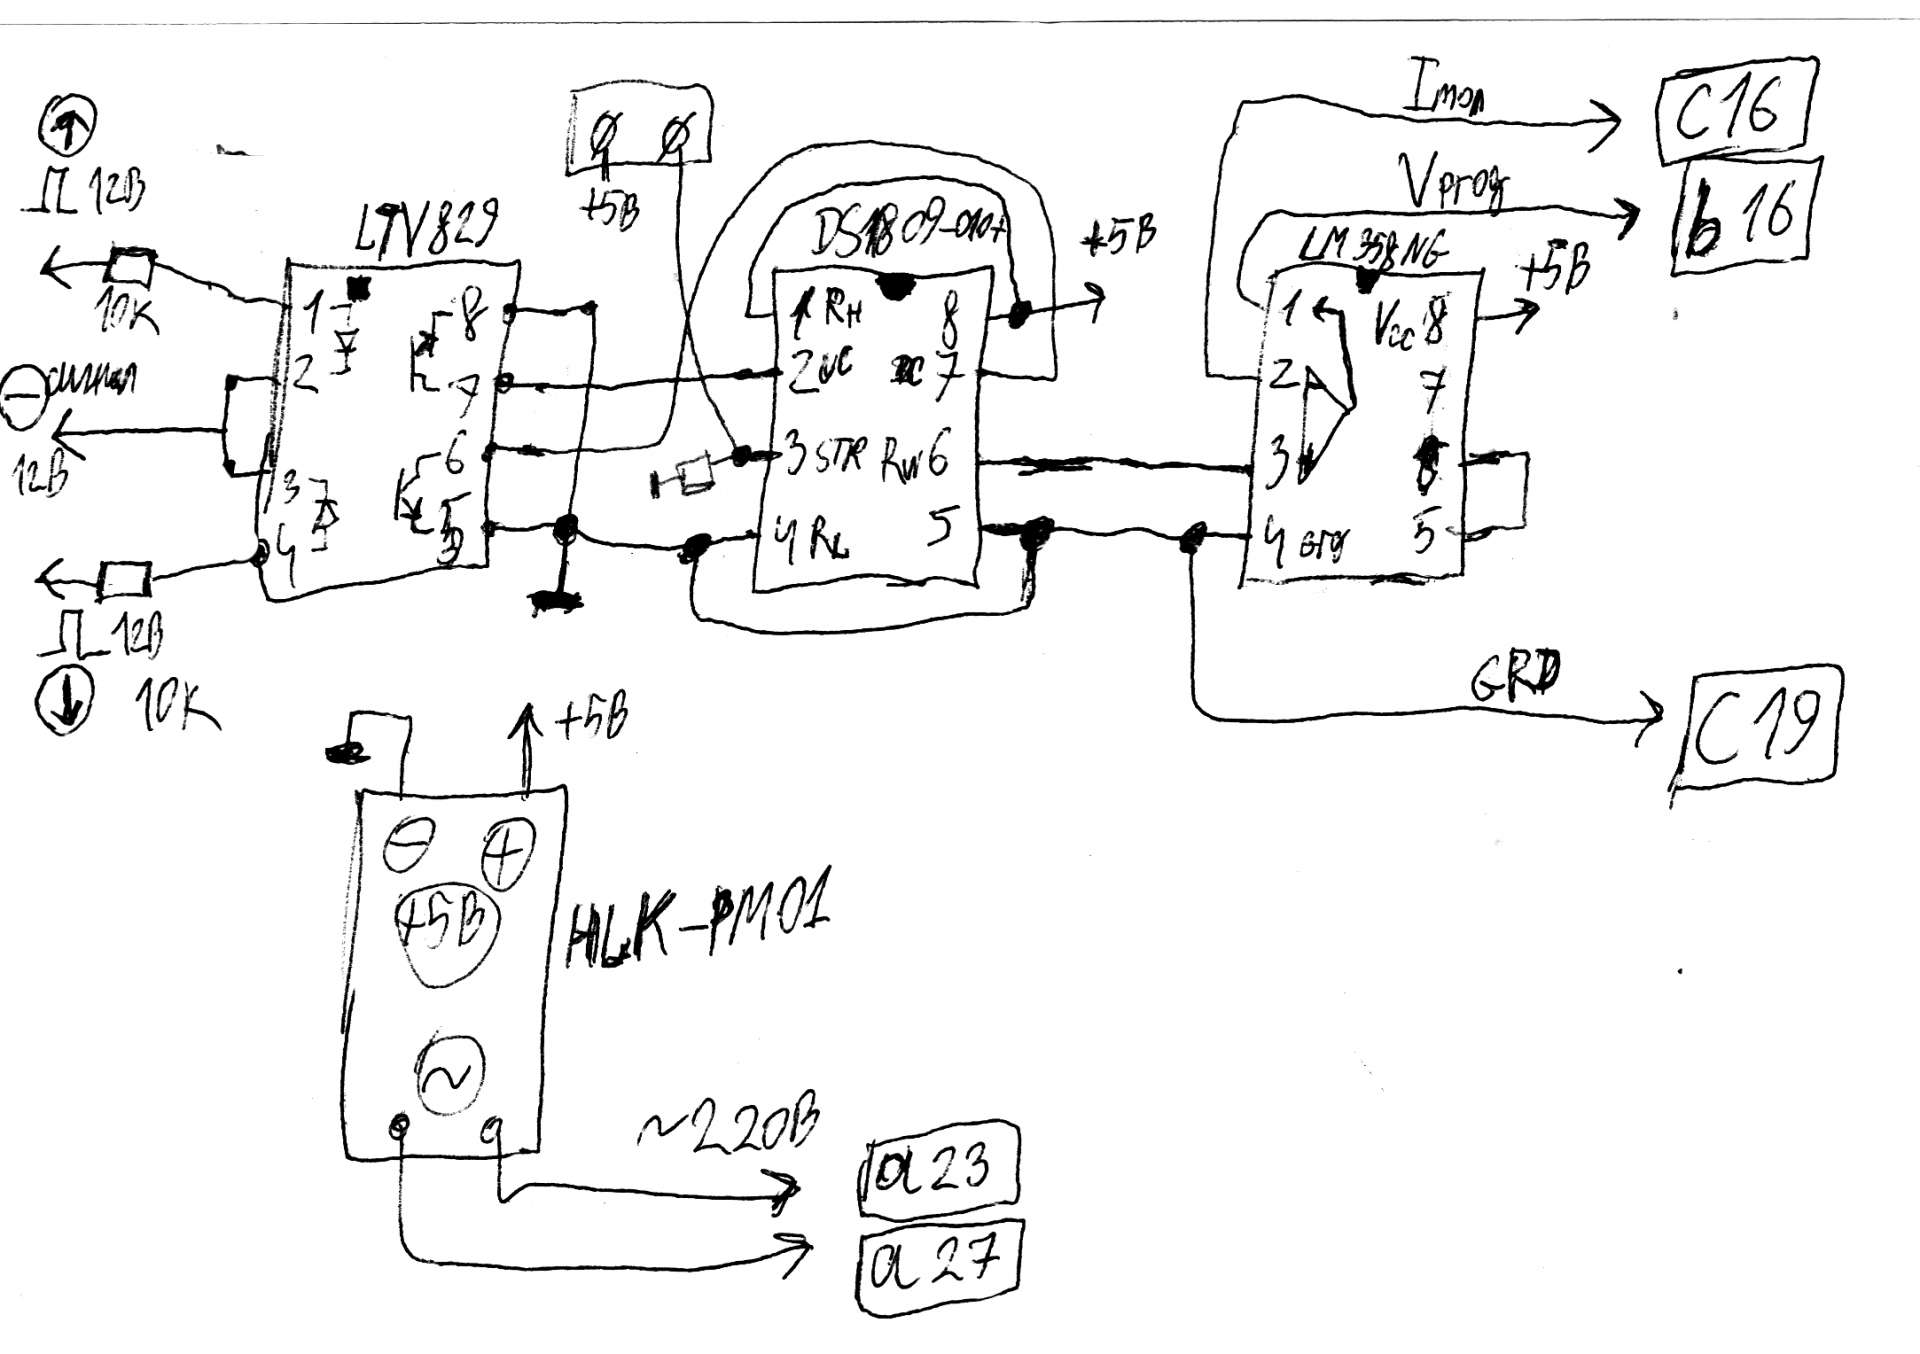 Imon
C16
Vprog
b16
12В
+5В
LTV829
DS1809-010+
+5В
LM358NG
+5В
10К
1
8
2
7
6
3
5
4
1 RH
8
2 UC
DC 7
3 STR
RW 6
4 RL
5
1
Vcc 8
2
7
3
6
4 GRD
5
сигнал
12В
12В
10К
GRD
C19
+5В
+5В
HLK-PM01
~
~220В
a23
a27